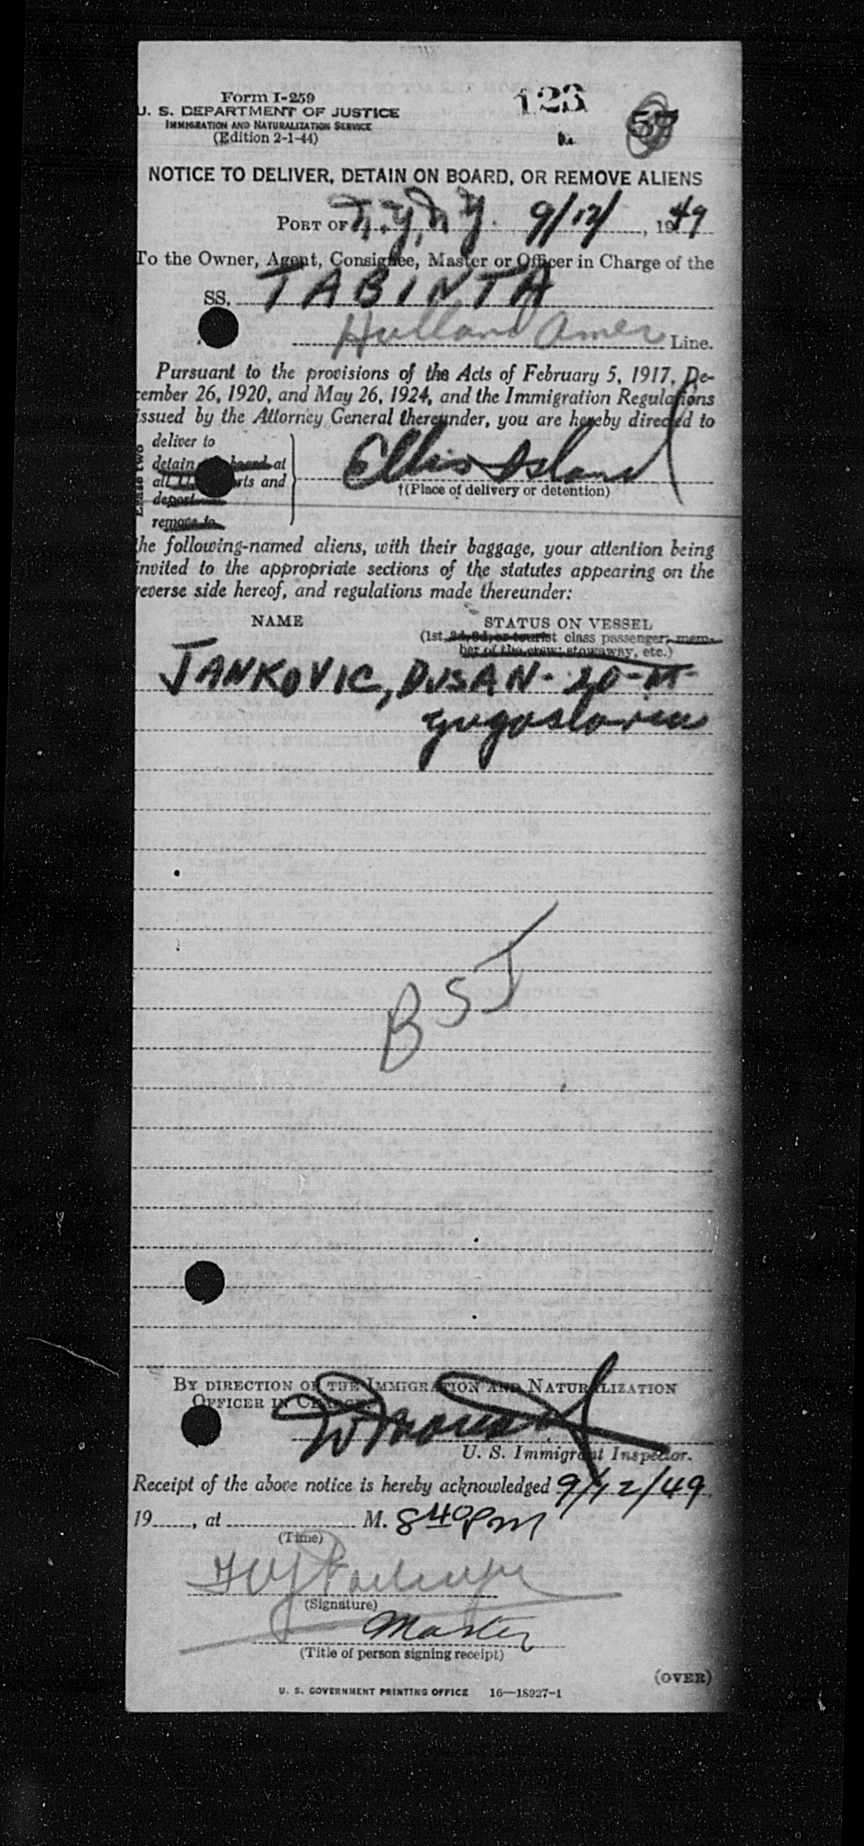 Form I-259
U. S. DEPARTMENT OF JUSTICE
IMMIGRATION AND NATURALIZATION SERVICE
(Edition 2-1-44)
123
57
NOTICE TO DELIVER, DETAIN ON BOARD, OR REMOVE ALIENS
PORT OF N.Y, N.Y. 9/12/, 1949
To the Owner, Agent, Consignee, Master or Officer in Charge of the
SS. TABINTA
Holland Amer Line.
Pursuant to the provisions of the Acts of February 5, 1917, De-
cember 26, 1920, and May 26, 1924, and the Immigration Regulations
issued by the Attorney General thereunder, you are hereby directed to
deliver to
detain on board at
all U. S. ports and
deport
remove to
Ellis Island
†(Place of delivery or detention)
the following-named aliens, with their baggage, your attention being
invited to the appropriate sections of the statutes appearing on the
reverse side hereof, and regulations made thereunder:
NAME STATUS ON VESSEL
(1st, 2d, 3d, or tourist class passenger, mem-
ber of the crew, stowaway, etc.)
JANKOVIC, DUSAN - 20 - M -
Yugoslavia
BSI
BY DIRECTION OF THE IMMIGRATION AND NATURALIZATION
OFFICER IN CHARGE
U. S. Immigrant Inspector.
Receipt of the above notice is hereby acknowledged 9/12/49
19, at M. 840 Pm
(Time)
(Signature)
Master
(Title of person signing receipt)
(OVER)
U. S. GOVERNMENT PRINTING OFFICE 16—18927-1